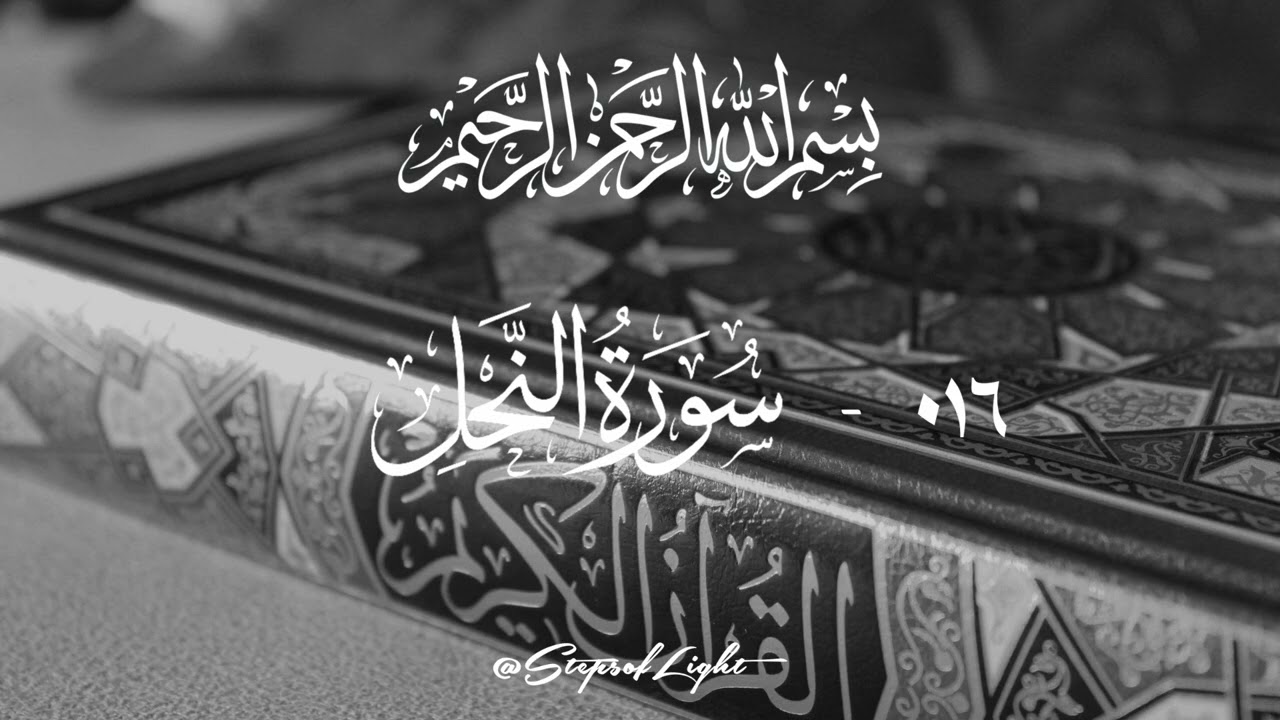 بِسْمِ اللهِ الرَّحْمٰنِ الرَّحِيْمِ
٠١٦ - سُوْرَةُ النَّحْلِ
القُرآنُ الكَرِيْمُ
@StepsofLight